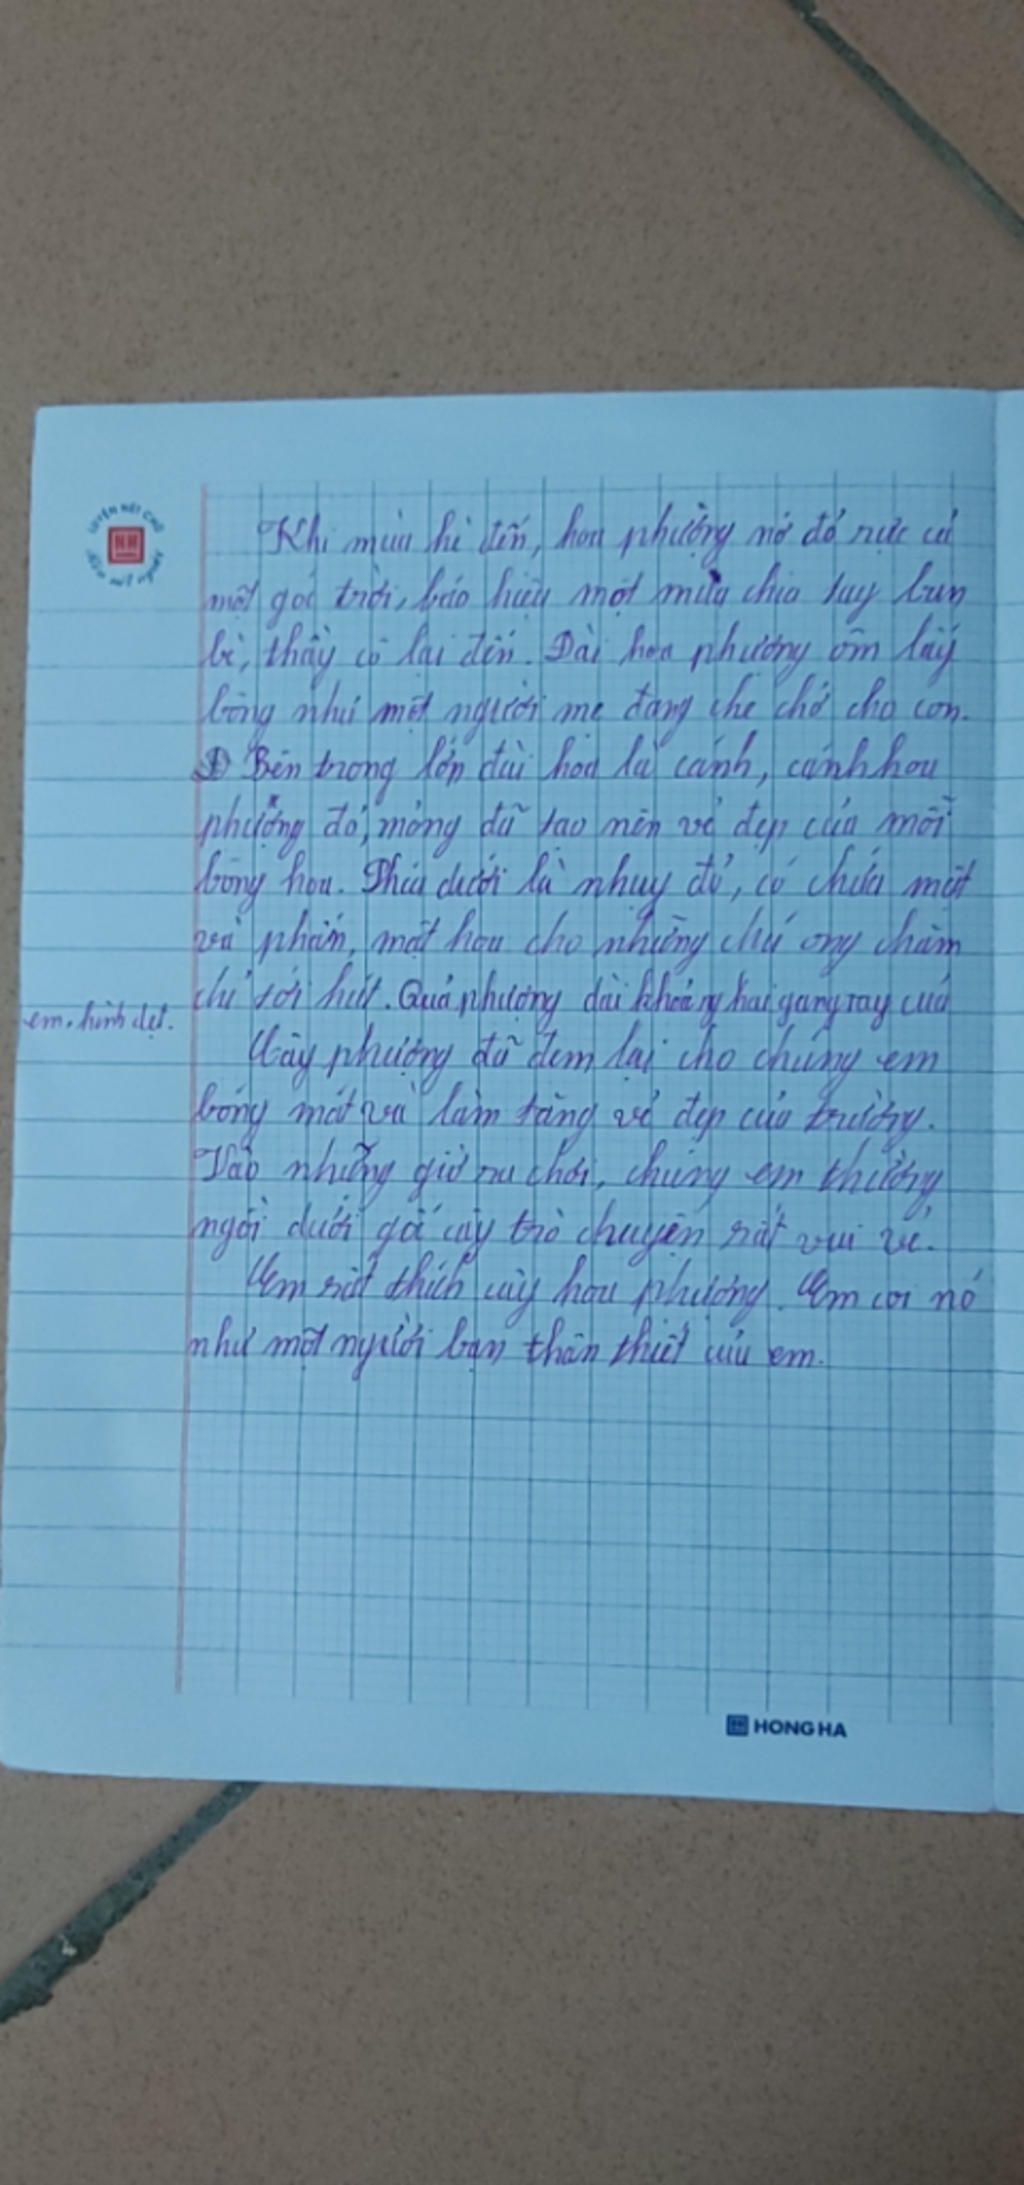 LUYỆN NÉT CHỮ
RÈN NẾT NGƯỜI
Khi mùa hè đến, hoa phượng nở đỏ rực cả
một góc trời, báo hiệu một mùa chia tay bạn
bè, thầy cô lại đến. Đài hoa phượng ôm lấy
bông như một người mẹ đang che chở cho con.
Bên trong lớp đài hoa là cánh, cánh hoa
phượng đỏ, mỏng đã tạo nên vẻ đẹp của mỗi
bông hoa. Phía dưới là nhụy đỏ, có chứa mật
và phấn, mật hoa cho những chú ong chăm
chỉ tới hút. Quả phượng dài khoảng hai gang tay của
em, hình dẹt.
Cây phượng đã đem lại cho chúng em
bóng mát và làm tăng vẻ đẹp của trường.
Vào những giờ ra chơi, chúng em thường
ngồi dưới gốc cây trò chuyện rất vui vẻ.
Em rất thích cây hoa phượng. Em coi nó
như một người bạn thân thiết của em.
HONG HA